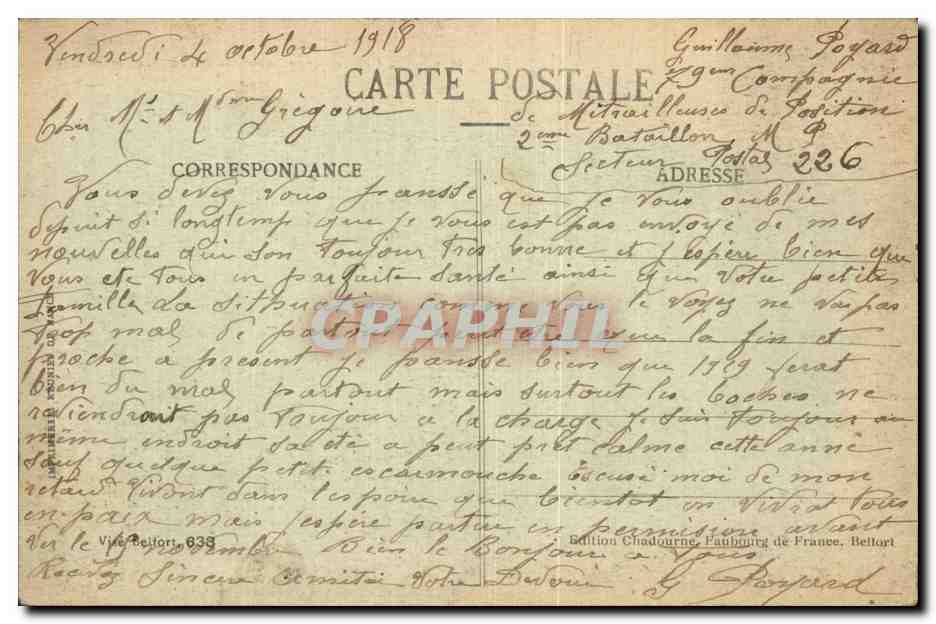 Vendredi 4 octobre 1918
Guillaume Poyard
29em Compagnie
CARTE POSTALE
Cher Mr & Mdme Grégoire
de Mitrailleuses de Position
2eme Bataillon M P
Secteur Postal 226
CORRESPONDANCE
ADRESSE
Vous devez vous panssé que je vous oublie
depuit si longtemp que je vous est pas envoyé de mes
nouvelles qui son toujour tres bonne et j espère bien que
vous ete tous en parfaite santé ainsi que votre petite
famille La sithuation comme vous le voyez ne vas pas
trop mal de partout peut etre que la fin et
proche a present je pansse bien que 1919 ferat
bien du mal partout mais surtout les boches ne
reviendront pas toujour a la charge Je suis toujour au
même endroit sa eté a peut pret calme cette anné
sauf quelque petite escarmouche Escusé moi de mon
retard Vivont dans l espoire que bientot on vivrat tous
en paix mais j espère partire en permission avant
ver le 15 novembre Bien le Bonjour a vous
Recevez Sincere Amitié Votre Devoué G Poyard
Visé Belfort, 633
Edition Chadourne, Faubourg de France, Belfort
IMPRIMERIE REUNIES DE NANCY
CPAPHIL